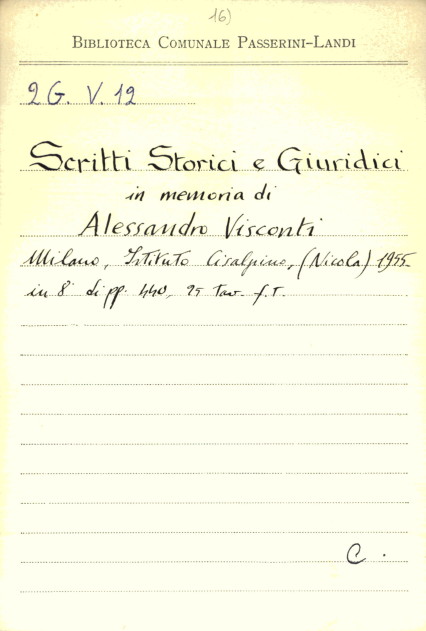 16)
BIBLIOTECA COMUNALE PASSERINI-LANDI
2 G. V. 12
Scritti Storici e Giuridici
in memoria di
Alessandro Visconti
Milano, Istituto Cisalpino, (Nicola) 1955
in 8° di pp. 440, 25 tav. f.t.
C.